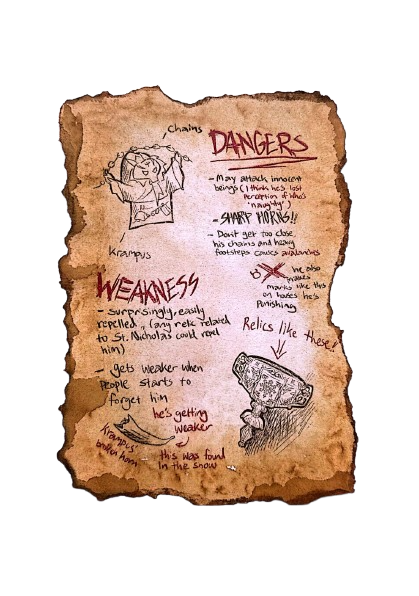 Chains
DANGERS
- May attack innocent
beings (I think he's lost
perception of who's
"naughty")
- SHARP HORNS!!
- Don't get too close,
his chains and heavy
footsteps causes avalanches
Krampus
he also
makes
marks like this
on houses he's
Punishing
WEAKNESS
- surprisingly, easily
repelled, (any relic related
to St. Nicholas could repel
him)
- gets weaker when
people starts to
forget him
Relics like these!
he's getting
weaker
Krampus'
broken horn
this was found
in the snow